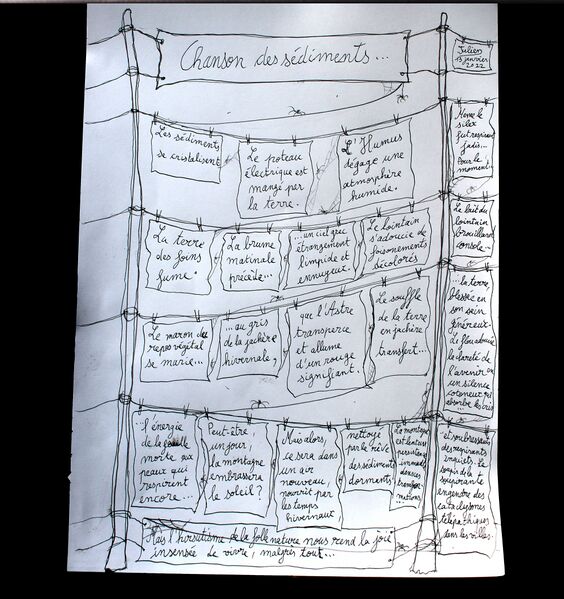 Chanson des sédiments...
Julien
13 janvier
2022
Les sédiments
se cristalisent
Le poteau
électrique est
mangé par
la terre.
L'Humus
dégage une
atmosphère
humide.
Même le
silex
fut respirant
jadis...
Pour le
moment!
La terre
des foins
fume.
La brume
matinale
précède...
...un ciel gris
étrangement
limpide et
ennuyeux.
Le lointain
s'adoucie de
foisonnements
décolorés
Le lait du
lointain
brouillard
console
Le maron du
repos végétal
se marie...
...au gris
de la jachère
hivernale,
que l'Astre
transperce
et allume
d'un rouge
signifiant.
Le souffle
de la terre
en jachère
transfert...
...la terre,
blessée en
son sein
généreux,
la pureté de
l'avenir en
un silence
absorbe les cris
...l'énergie
de la feuille
morte aux
peaux qui
respirent
encore...
Peut-être,
un jour,
la montagne
embrassera
le soleil?
Mais alors,
ce sera dans
un air
nouveau,
nourrit par
les temps
hivernaux
nettoyé
par le rêve
des sédiments
dormants.
La montagne
est
mations
et
des respirants
inquiets. Le
soupir de la
engendre des
cataclysmes
télépathiques
dans les villes.
Mais l'hirsutisme de la folle nature nous rend la joie
insensée de vivre, malgré tout...